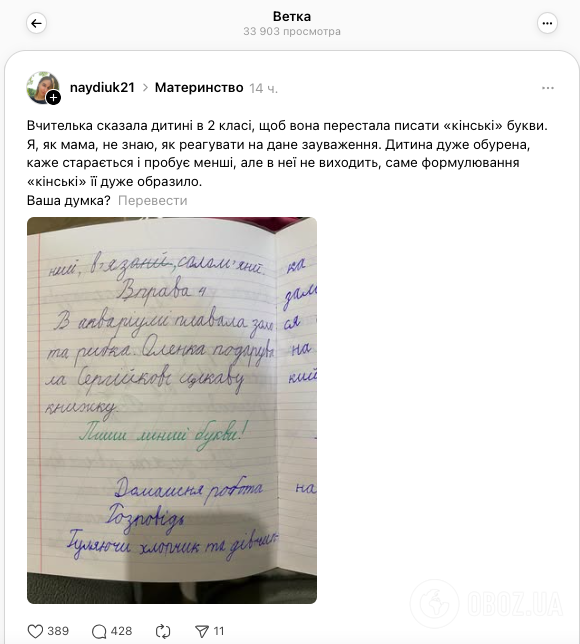 Ветка
33 903 просмотра
naydiuk21 > Материнство 14 ч.
Вчителька сказала дитині в 2 класі, щоб вона перестала писати «кінські» букви.
Я, як мама, не знаю, як реагувати на дане зауваження. Дитина дуже обурена,
каже старається і пробує менші, але в неї не виходить, саме формулювання
«кінські» її дуже образило.
Ваша думка? Перевести
кий, в'язаний, солом'яний
Вправа 4
В акваріумі плавала золо
та рибка. Оленка подарува
ла Сергійкові цікаву
книжку.
Пиши менші букви!
Домашня робота
Розповідь
Гуляючи хлопчик та дівчин
ка
ся
на
кий
на
389 428 11
OBOZ.UA